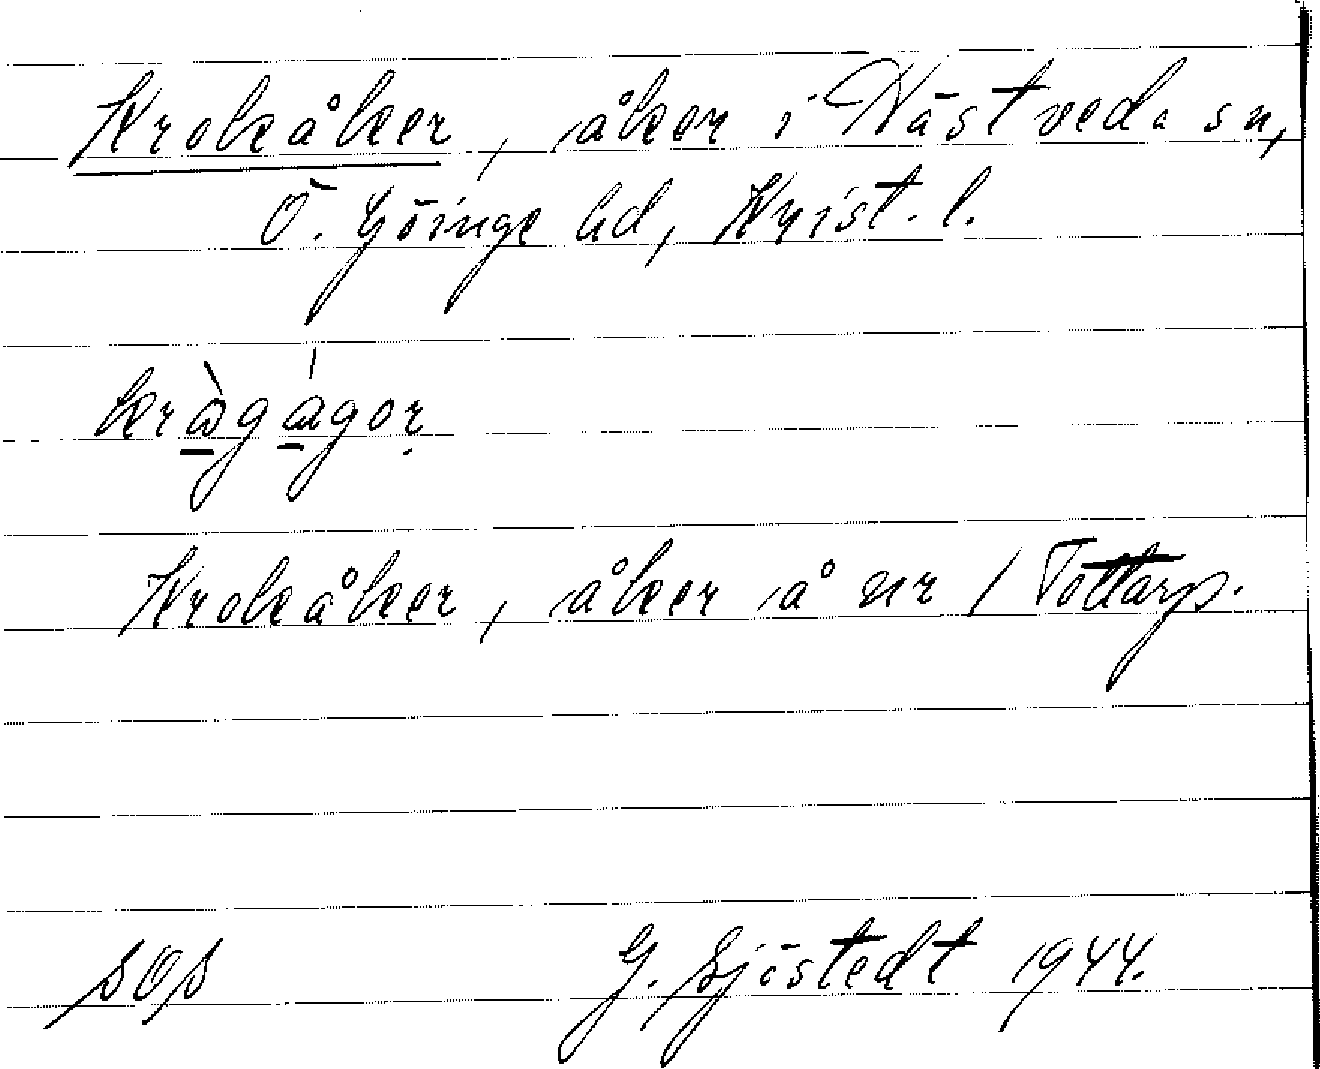 Krokåker, åker i Nästveda sn,
Ö. Göinge hd, Krist. l.
kràgágor
Krokåker, åker å nr 1 Tottarp.
SOS G. Sjöstedt 1944.